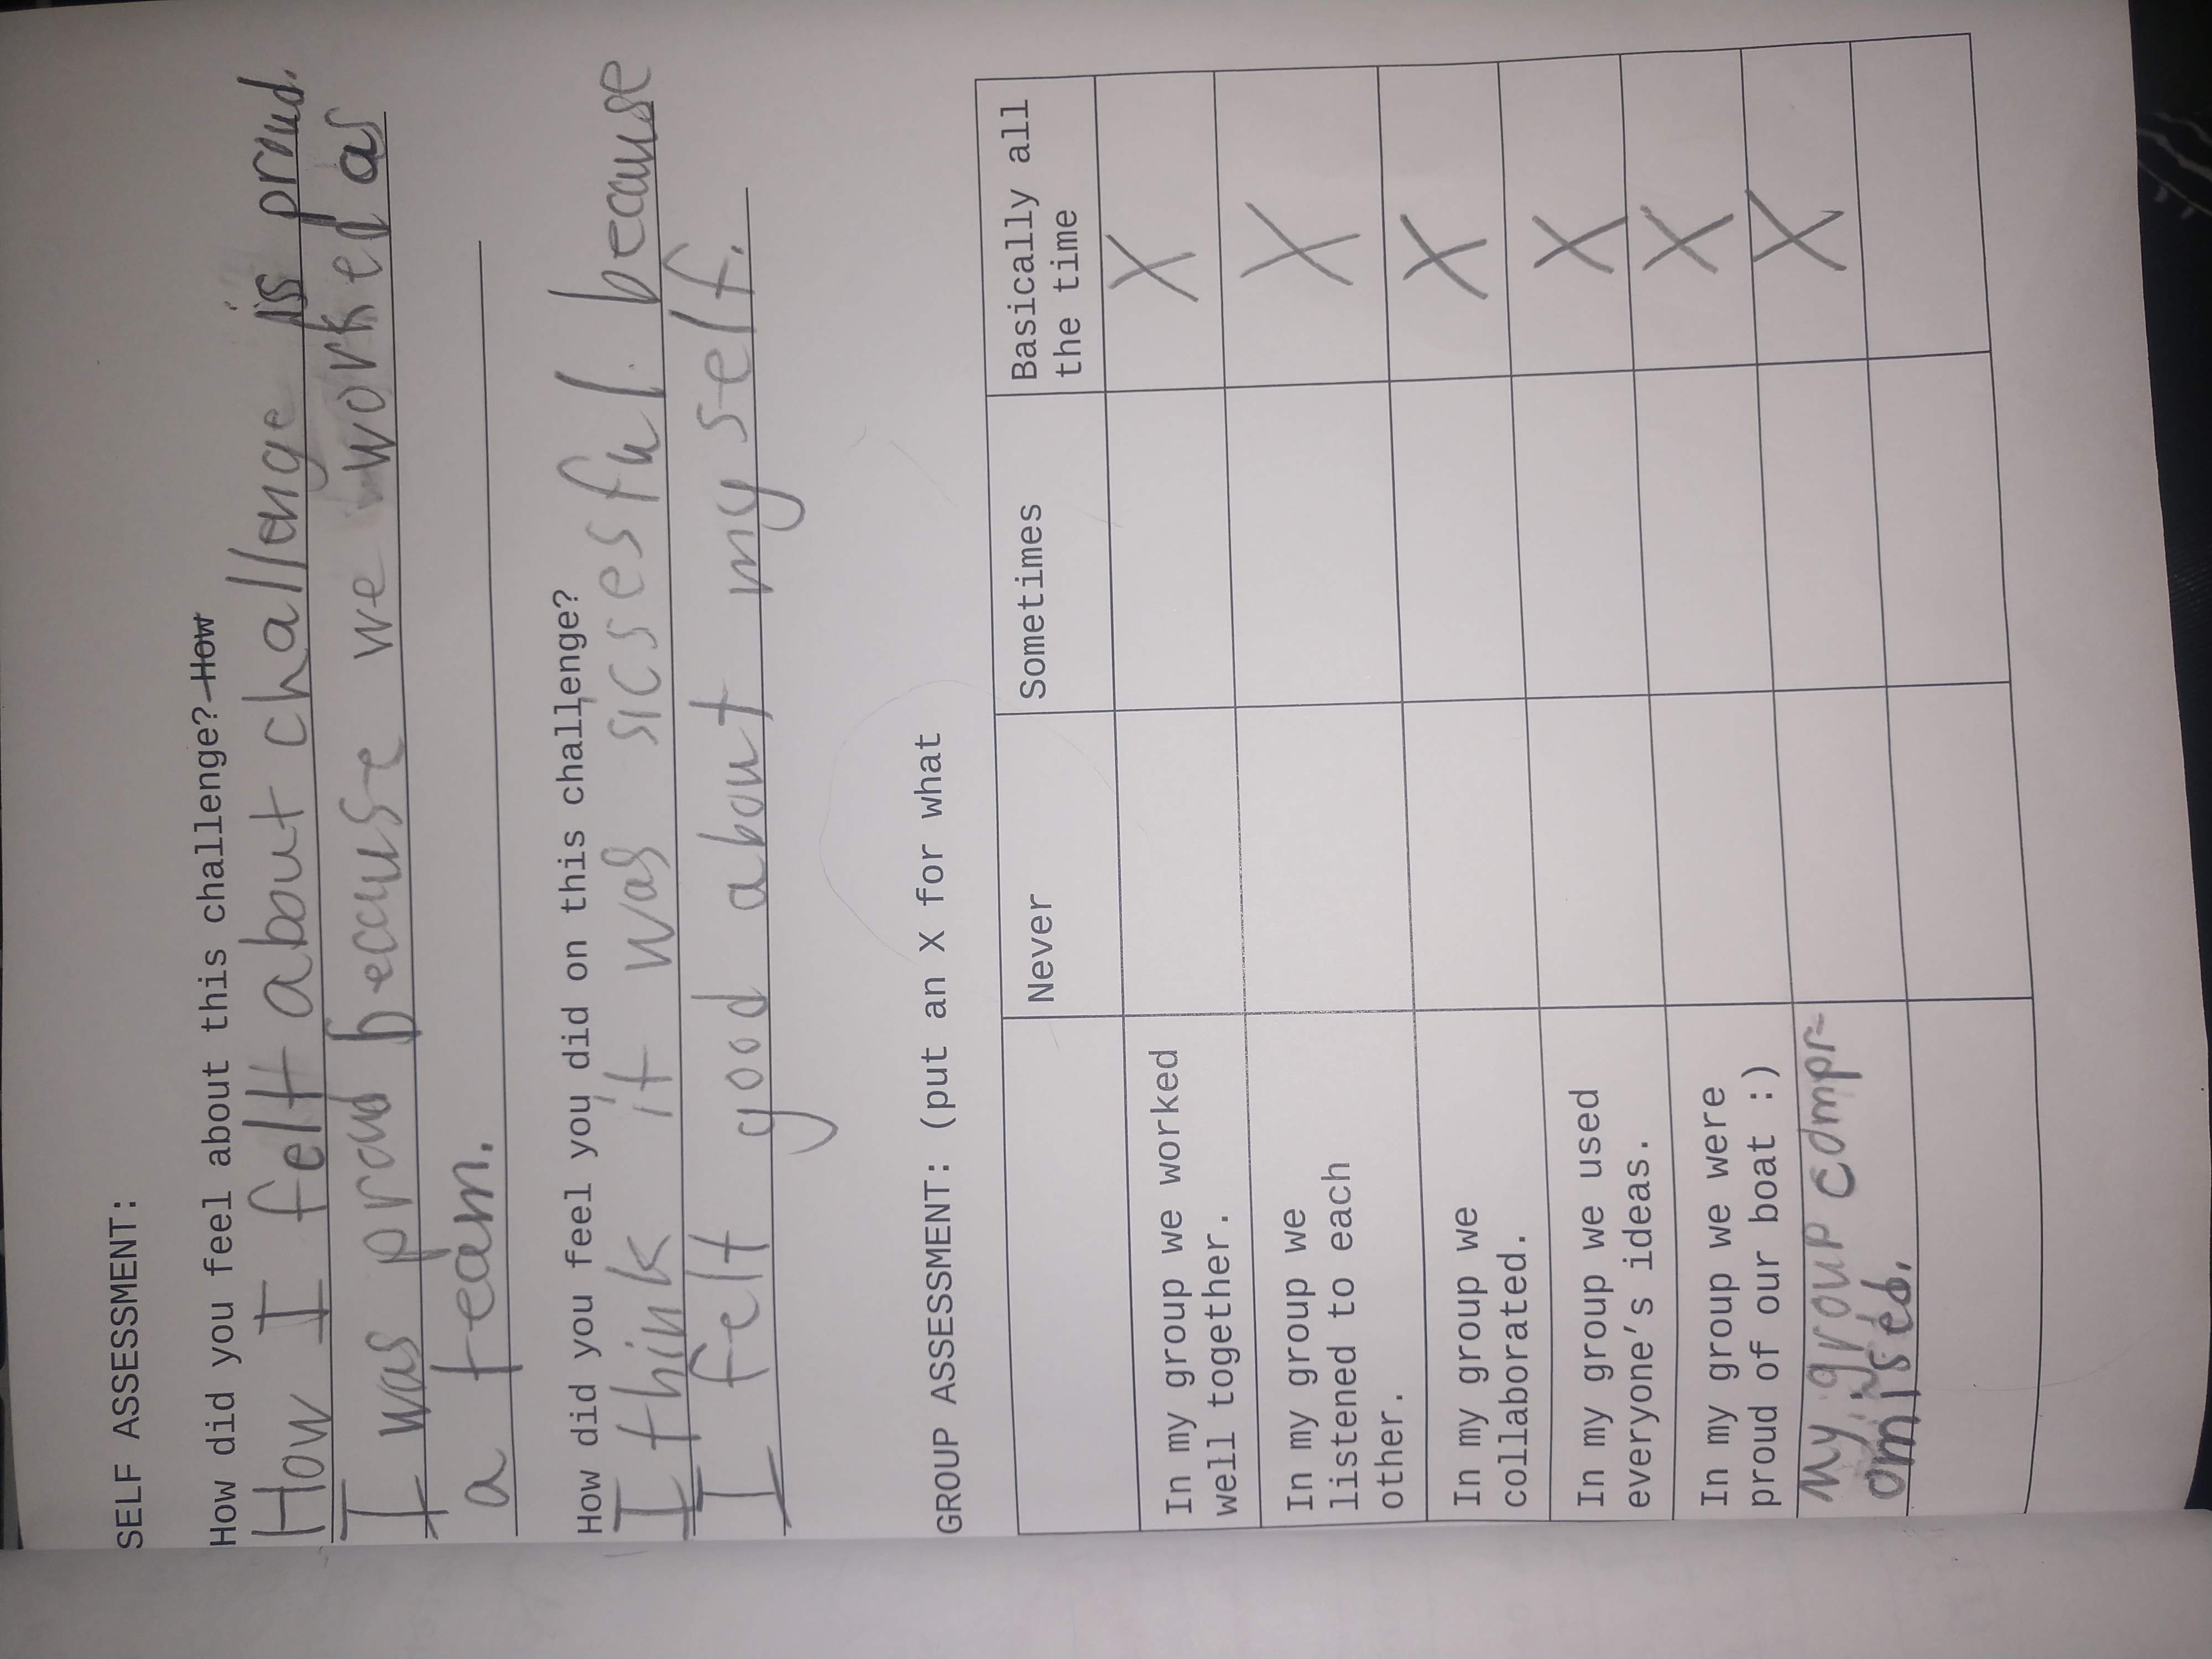 SELF ASSESSMENT:
How did you feel about this challenge? How
How I felt about challenge is proud.
I was proud because we worked as
a team.
How did you feel you did on this challenge?
I think it was sicsesful because
I felt good about my self.
GROUP ASSESSMENT: (put an X for what
Never Sometimes Basically all
the time
In my group we worked
well together. X
In my group we
listened to each
other. X
In my group we
collaborated. X
In my group we used
everyone's ideas. X
In my group we were
proud of our boat :) X
My group compr-
omised. X